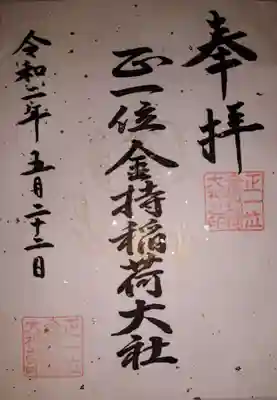 奉拝
正一位金持稲荷大社
令和二年五月二十二日
正一位